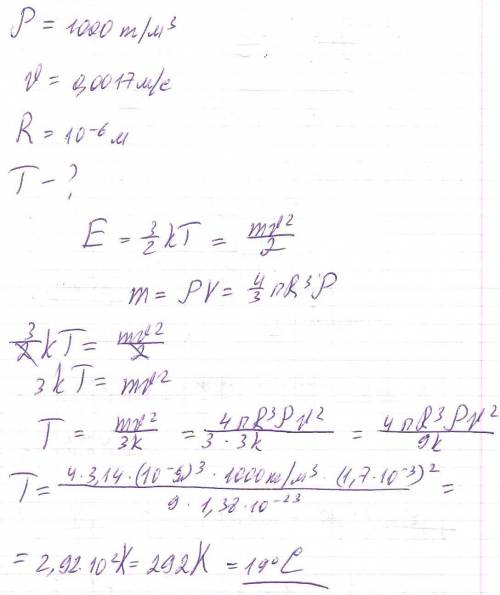 ρ = 1000 т/м³
v = 0,0017 м/с
R = 10⁻⁶ м
T - ?
E = 3/2 kT = mv²/2
m = ρV = 4/3 πR³ρ
3/2 kT = mv²/2
3kT = mv²
T = mv²/3k = 4πR³ρv²/3·3k = 4πR³ρv²/9k
T = 4·3,14·(10⁻⁶)³·1000кг/м³·(1,7·10⁻³)²/9·1,38·10⁻²³ =
= 2,92·10²K = 292K = 19°C